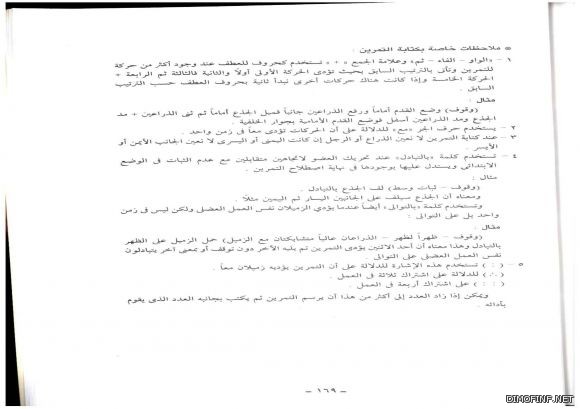 • ملاحظات خاصة بكتابة التمرين :
١ - الواو - الفاء - ثم، وعلامة الجمع « + » تستخدم كحروف للعطف عند وجود أكثر من حركة
للتمرين وتأتى بالترتيب السابق بحيث تؤدى الحركة الأولى أولاً والثانية فالثالثة ثم الرابعة +
الحركة الخامسة وإذا كانت هناك حركات أخرى نبدأ ثانية بحروف العطف حسب الترتيب
السابق .
مثال :
(وقوف) وضع القدم أماماً ورفع الذراعين جانباً فميل الجذع أماماً ثم ثنى الذراعين + مد
الجذع ومد الذراعين أسفل فوضع القدم الأمامية بجوار الخلفية .
٢ - يستخدم حرف الجر «مع» للدلالة على أن الحركات تؤدى معاً فى زمن واحد .
٣ - عند كتابة التمرين لا تعين الذراع أو الرجل إن كانت اليمنى أو اليسرى لا تعين الجانب الأيمن أو
الأيسر .
٤ - تستخدم كلمة «بالتبادل» عند تحريك العضو لاتجاهين متقابلين مع عدم الثبات فى الوضع
الابتدائى ويستدل عليها بوجودها فى نهاية اصطلاح التمرين .
مثال :
(وقوف - ثبات وسط) لف الجذع بالتبادل .
ومعناه أن الجذع سيلف على الجانبين اليسار ثم اليمين مثلاً
وتستخدم كلمة «بالتوالى» أيضاً عندما يؤدى الزميلان نفس العمل العضلى ولكن ليس فى زمن
واحد بل على التوالى :
مثال
(وقوف - ظهراً لظهر - الذراعان عالياً متشابكتان مع الزميل) حمل الزميل على الظهر
بالتبادل وهذا معناه أن أحد الاثنين يؤدى التمرين ثم يليه الآخر دون توقف أو بمعنى آخر يتبادلون
نفس العمل العضلى على التوالى .
٥ - ( : ) تستخدم هذه الإشارة للدلالة على أن التمرين يؤديه زميلان معاً .
(∴) للدلالة على اشتراك ثلاثة فى العمل .
( : : ) على اشتراك أربعة فى العمل .
ويمكن إذا زاد العدد إلى أكثر من هذا أن يرسم التمرين ثم يكتب بجانبه العدد الذى يقوم
بأدائه .
- ١٦٩ -
DIMOFINF.NET